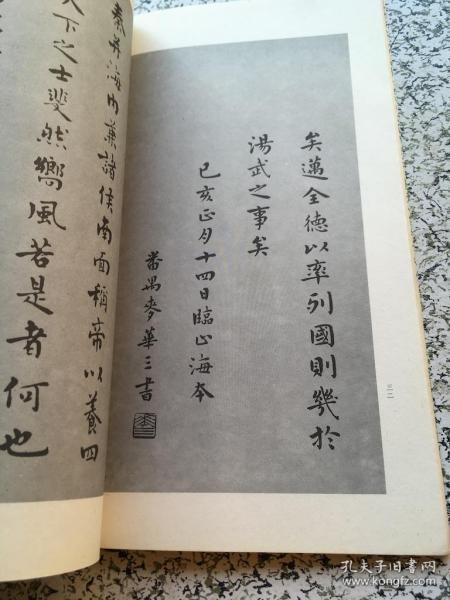 矣邁全德以率列國則幾於
湯武之事矣
己亥正月十四日臨山海本
番禺麥華三書
三一
秦并海內兼諸侯南面稱帝以養四
天下之士斐然嚮風若是者何也
孔夫子旧书网
www.kongfz.com